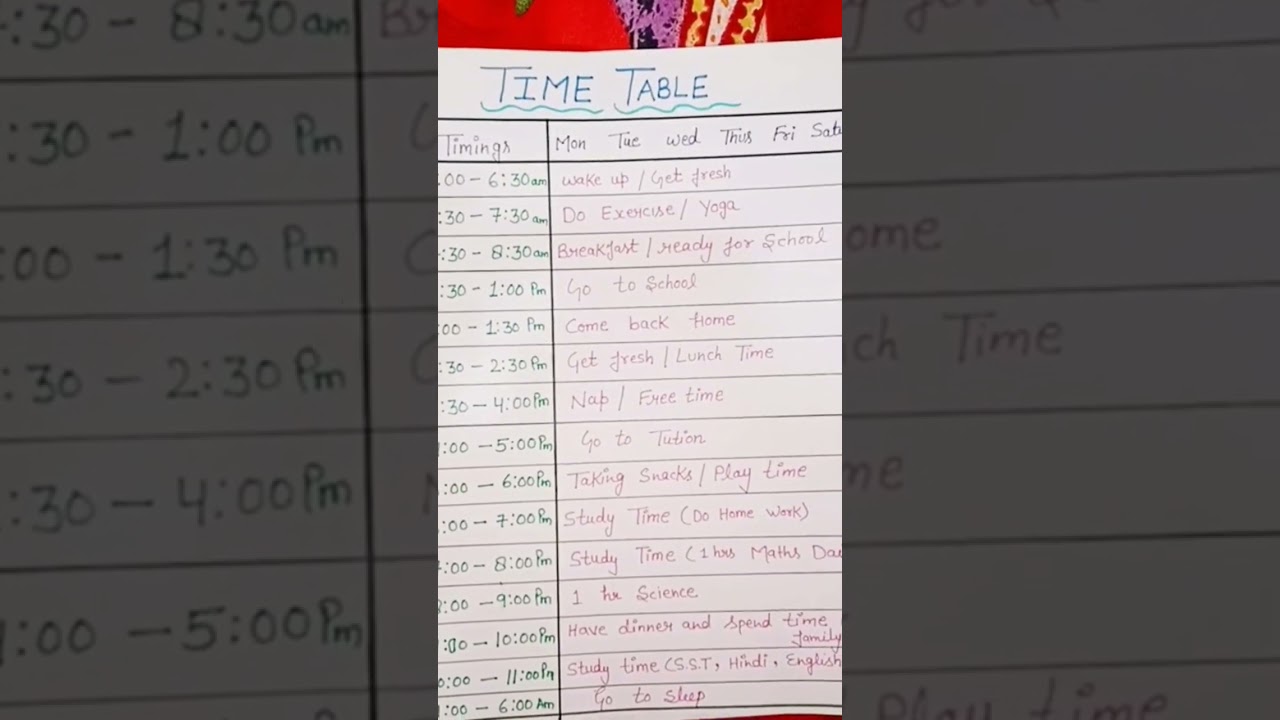 TIME TABLE
Timings Mon Tue wed Thus Fri Satu
:00 - 6:30am wake up / Get fresh
:30 - 7:30am Do Exercise / Yoga
:30 - 8:30am Breakfast / ready for School
:30 - 1:00 Pm Go to School
:00 - 1:30 Pm Come back home
:30 - 2:30Pm Get fresh / Lunch Time
:30 - 4:00Pm Nap / Free time
:00 - 5:00Pm Go to Tution
:00 - 6:00Pm Taking Snacks / Play time
:00 - 7:00Pm Study Time (Do Home Work)
:00 - 8:00Pm Study Time (1 hrs Maths Dai
:00 - 9:00Pm 1 hr Science
:00 - 10:00Pm Have dinner and spend time /
family
0:00 - 11:00Pm Study time (S.S.T, Hindi, English
:00 - 6:00Am Go to sleep